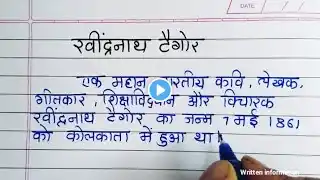 रवींद्रनाथ टैगोर
एक महान भारतीय कवि, लेखक,
गीतकार, शिक्षाविद्वान और विचारक
रवींद्रनाथ टैगोर का जन्म 7 मई 1861
को कोलकाता में हुआ था।
Written information